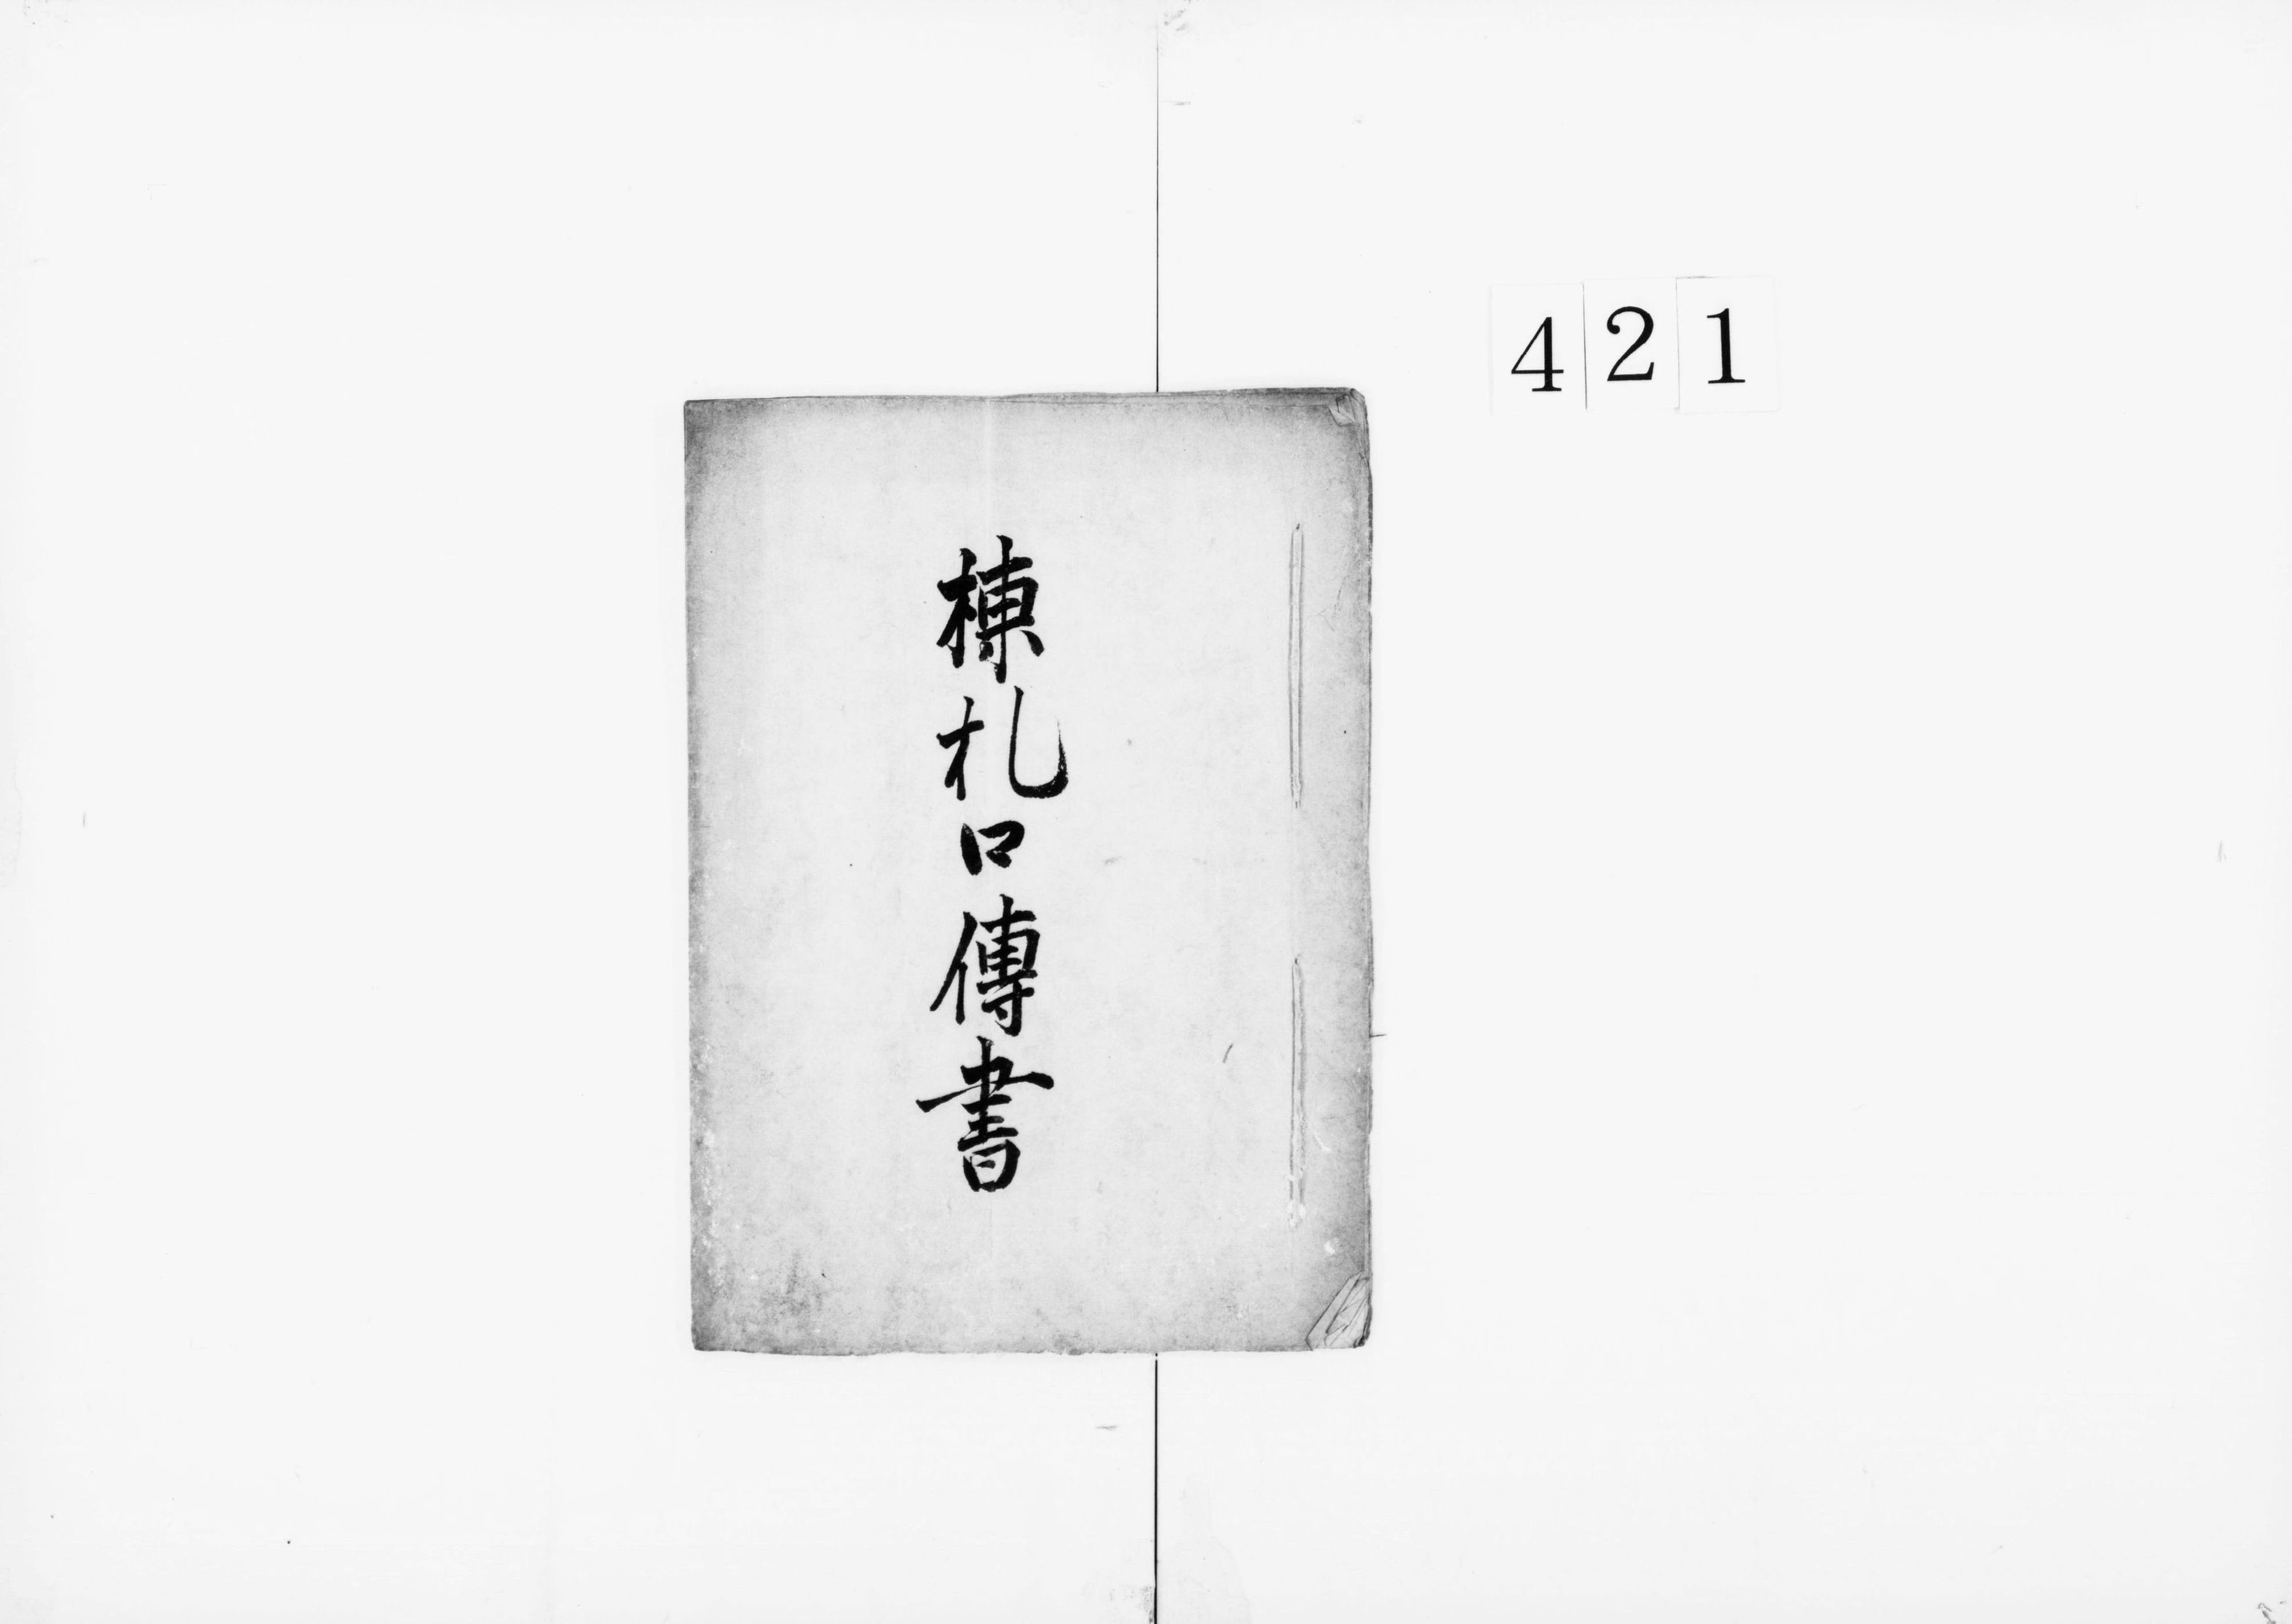 421
棟札口傳書